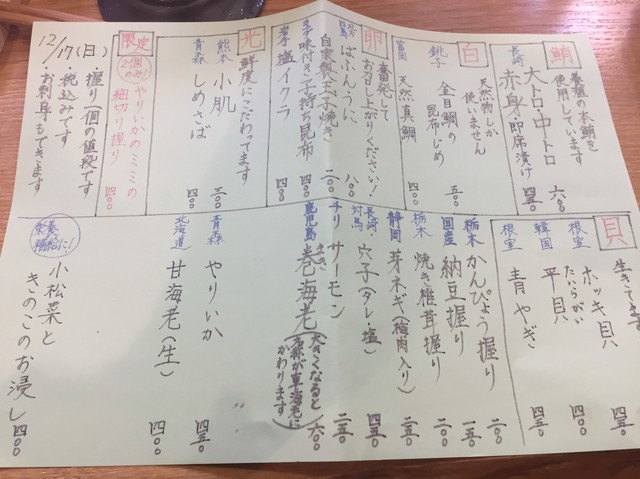 鮪
養殖の本鮪を
使用しています
長崎 大トロ・中トロ 六〇〇
赤身・即席漬け 四五〇
白
天然物しか
使いません
銚子 金目鯛の
昆布じめ 五〇〇
天然真鯛 四〇〇
卵
奮発して
お召し上がりください!
ばふんうに 八〇〇
自家製玉子焼き 二〇〇
味付き子持ち昆布 四〇〇
塩イクラ 四〇〇
光
鮮度にこだわってます
熊本 小肌 三〇〇
青森 しめさば 四〇〇
限定
2個のみ! やりいかのミミの
細切り握り 四〇〇
12/17(日)
・握り一個の値段です
・税込みです
・お刺身もできます
貝
生きてます
根室 ホッキ貝 四〇〇
韓国 たいらがい
平貝 四五〇
根室 青やぎ 四五〇
栃木 かんぴょう握り 二〇〇
国産 納豆握り 一五〇
栃木 焼き椎茸握り 二〇〇
静岡 芽ネギ(梅肉入り) 二五〇
長崎
対馬 穴子(タレ・塩) 四五〇
チリ サーモン 二五〇
鹿児島 巻海老(大きくなると
名称が車海老に
かわります) 六〇〇
青森 やりいか 四五〇
北海道 甘海老(生) 四〇〇
栄養
補給に!
小松菜と
きのこのお浸し 四〇〇